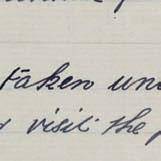 taken un
visit the